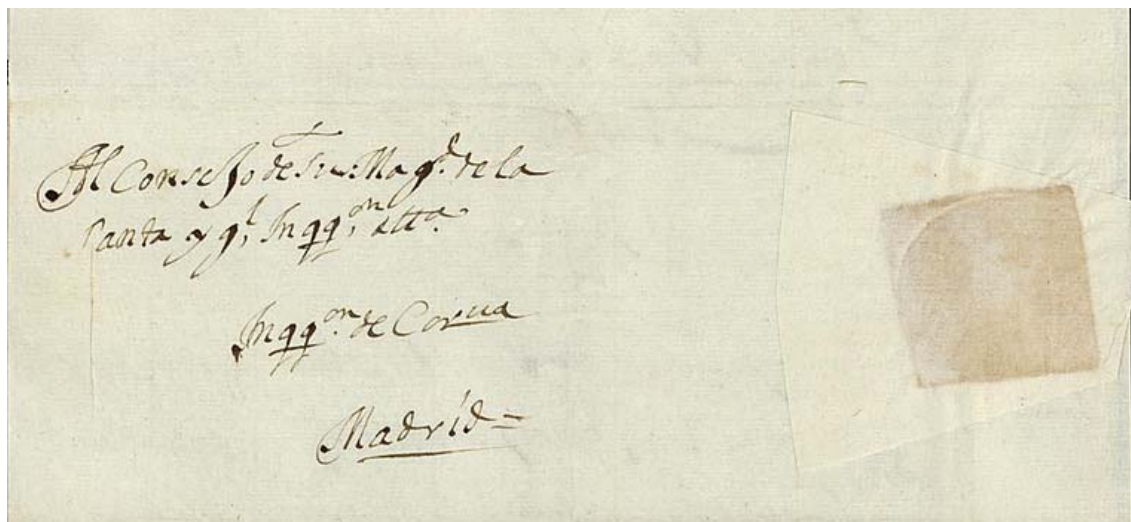 Al Consejo de Su Mag.d de la
Santa y g.l Inqq.on &tta.
Inqq.on de Corua
Madrid=